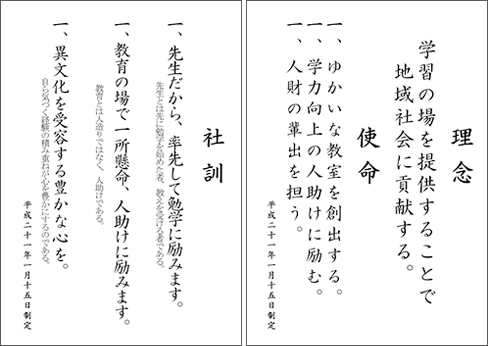 理念
学習の場を提供することで
地域社会に貢献する。
使命
一、ゆかいな教室を創出する。
一、学力向上の人助けに励む。
一、人財の輩出を担う。
平成二十一年一月十五日制定
社訓
一、先生だから、率先して勉学に励みます。
先生とは先に勉学を始めた者、教えを受ける者である。
一、教育の場で一所懸命、人助けに励みます。
教育とは人造りではなく、人助けである。
一、異文化を受容する豊かな心を。
自ら気づく経験の積み重ねが心を豊かにするのである。
平成二十一年一月十五日制定